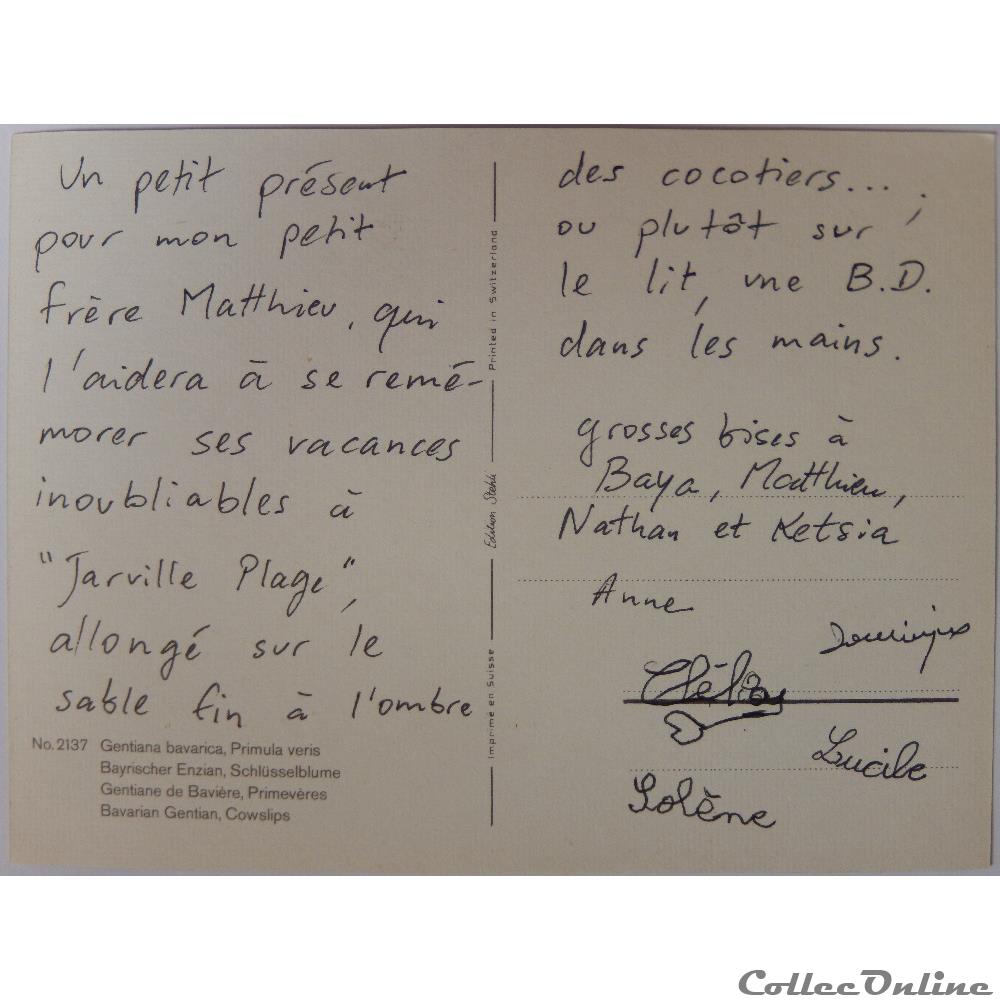 Un petit présent
pour mon petit
frère Matthieu, qui
l'aidera à se remé-
morer ses vacances
inoubliables à
"Jarville Plage",
allongé sur le
sable fin à l'ombre
No. 2137 Gentiana bavarica, Primula veris
Bayrischer Enzian, Schlüsselblume
Gentiane de Bavière, Primevères
Bavarian Gentian, Cowslips
Imprimé en Suisse
Edition Stehli
Printed in Switzerland
des cocotiers....,
ou plutôt sur
le lit, une B.D.
dans les mains.
grosses bises à
Baya, Matthieu,
Nathan et Ketsia
Anne
Dominique
Clélia
Lucile
Solène
CollecOnline